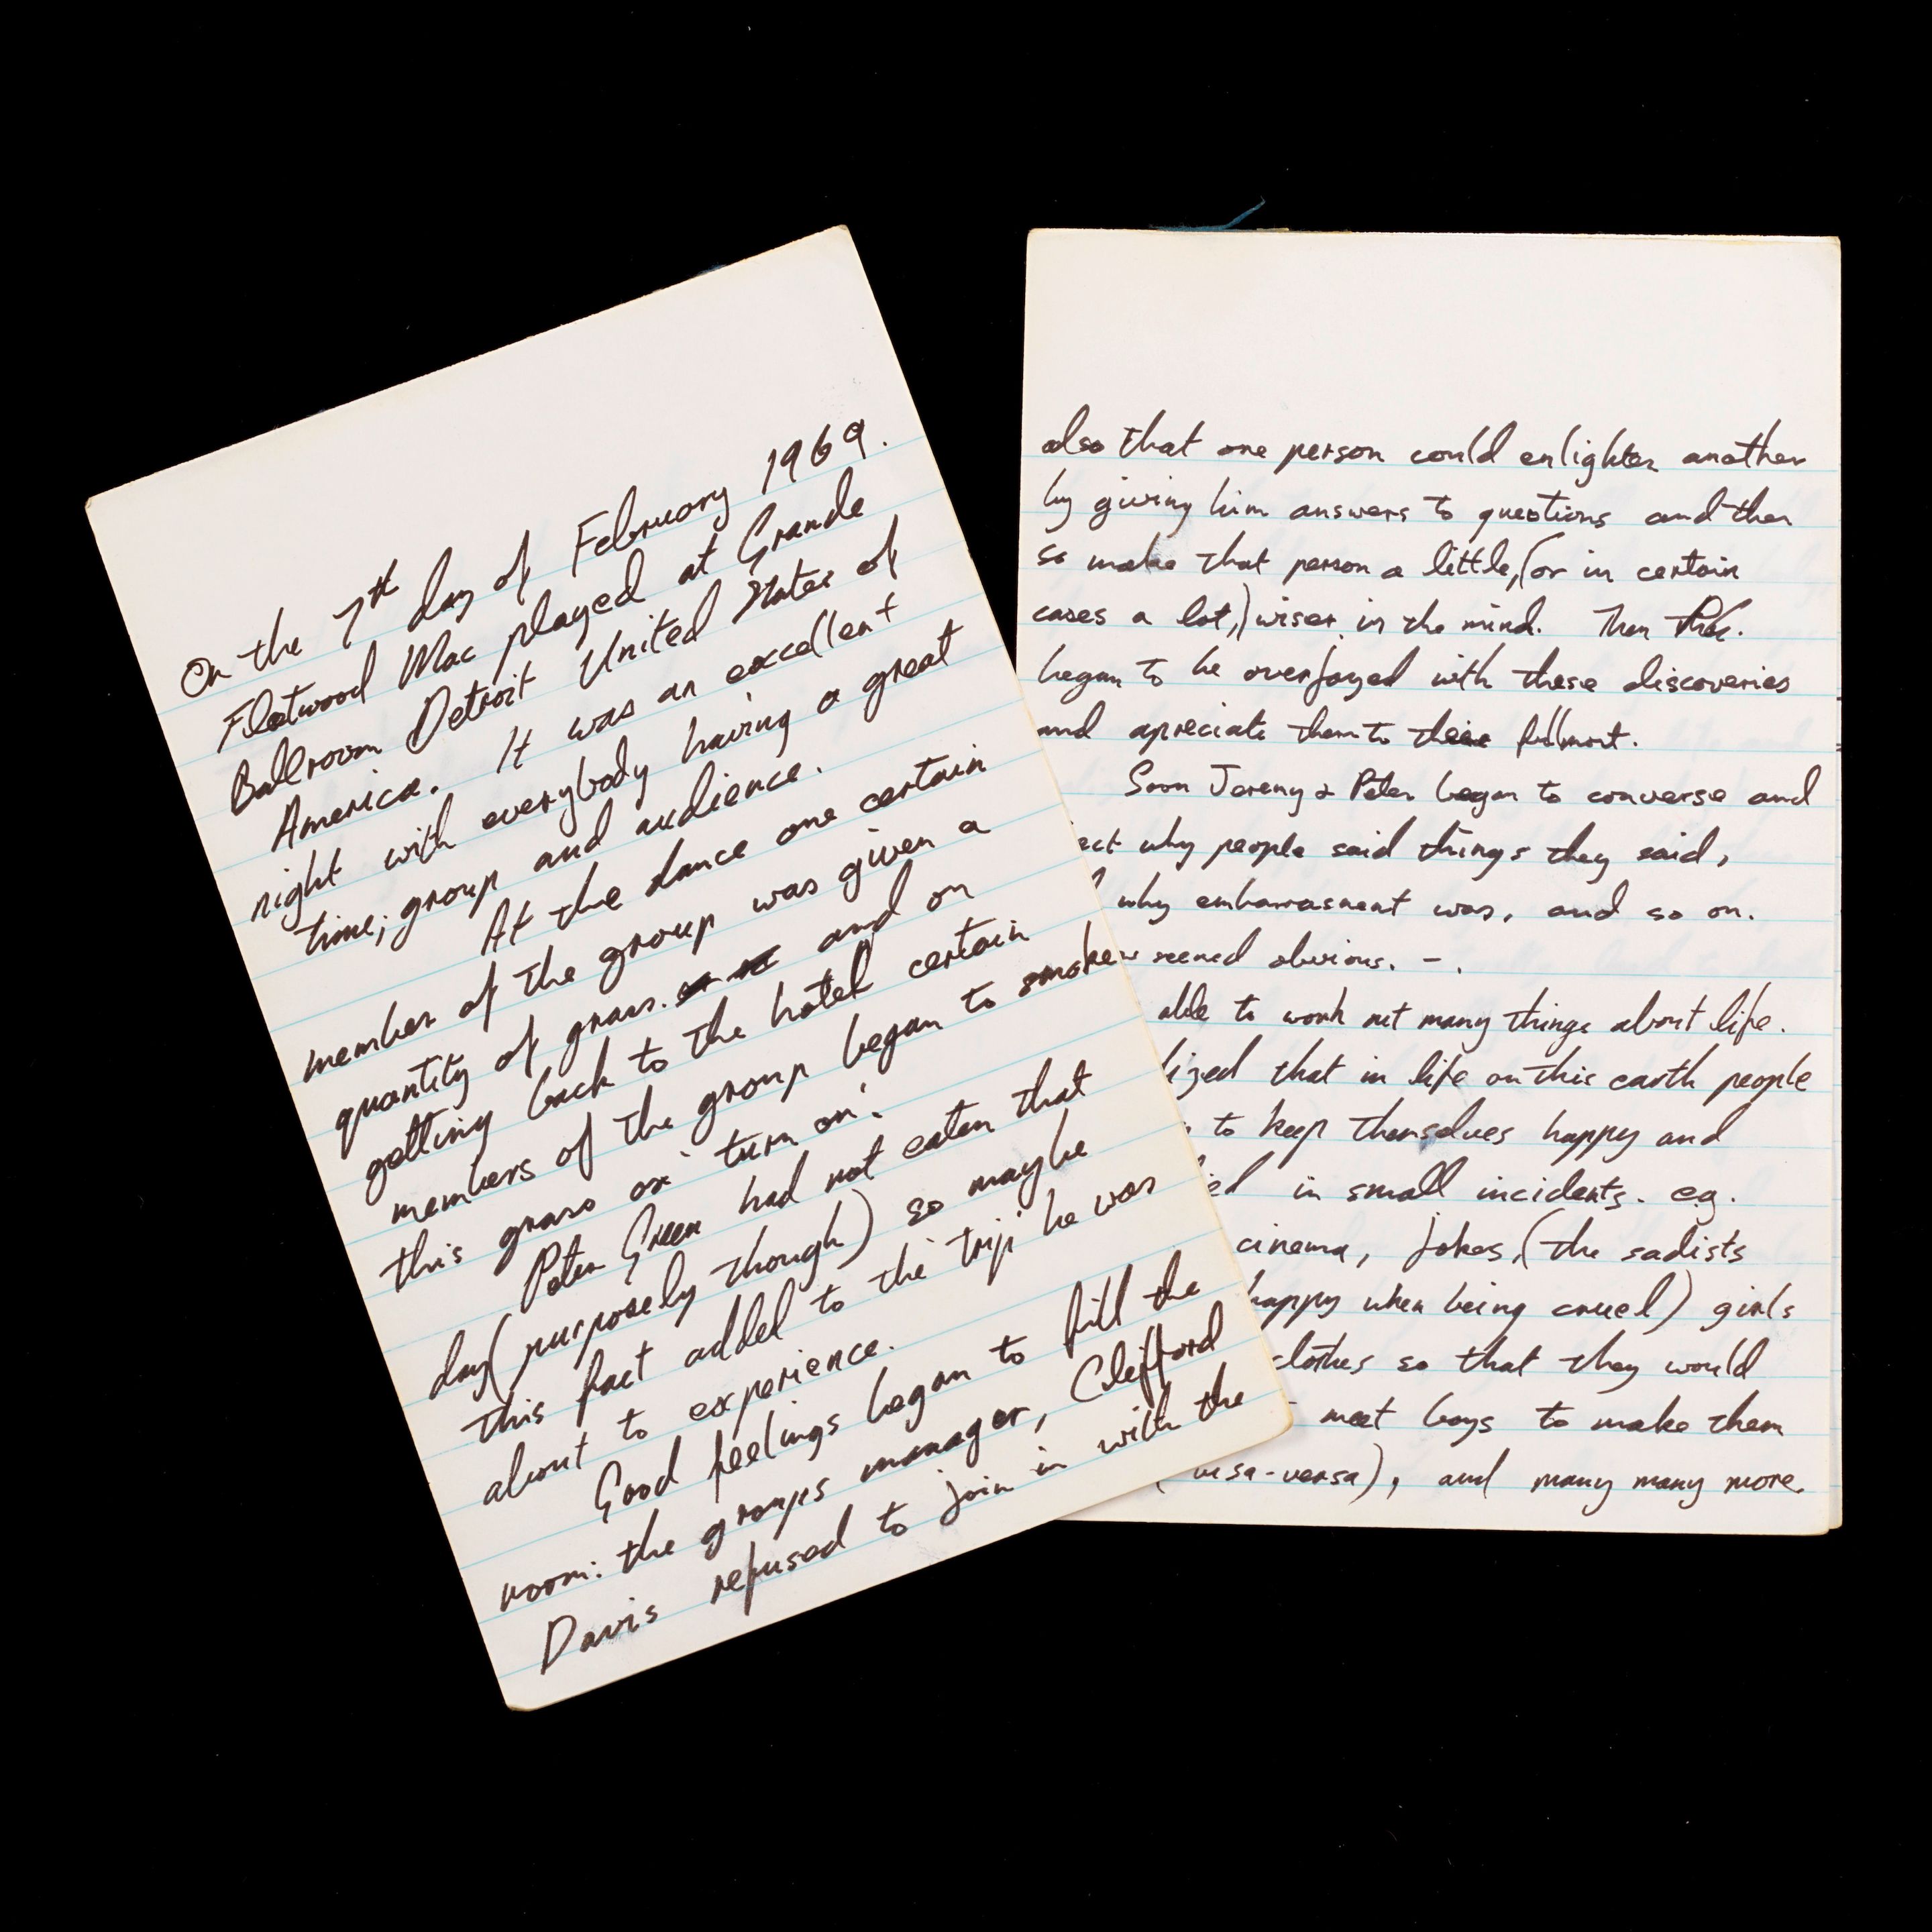 On the 7th day of February 1969.
Fleetwood Mac played at Grande
Ballroom Detroit United States of
America. It was an excellent
night with everybody having a great
time; group and audience.
At the dance one certain
member of the group was given a
quantity of grass. and on
getting back to the hotel certain
members of the group began to smoke
this grass or 'turn on'.
Peter Green had not eaten that
day (purposely though) so maybe
this fact added to the 'trip' he was
about to experience.
Good feelings began to fill the
room: the groups manager, Clifford
Davis refused to join in with the
also that one person could enlighten another
by giving him answers to questions and then
so make that person a little, (or in certain
cases a lot,) wiser in the mind. Then
began to be overjoyed with these discoveries
and apreciate them to fullmost.
Soon Jeremy & Peter began to converse and
ect why people said things they said,
why embarrasment was, and so on.
seemed obvious. -.
able to work out many things about life.
lized that in life on this earth people
to keep themselves happy and
ied in small incidents. eg.
cinema, jokes, (the sadists
happy when being cruel) girls
clothes so that they would
meet boys to make them
(visa-versa), and many many more.